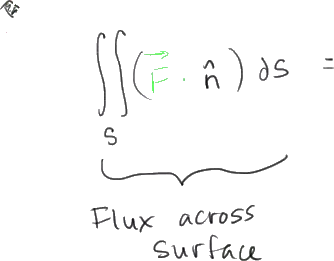 ∬(F⃗ · n̂) dS =
S
Flux across
surface